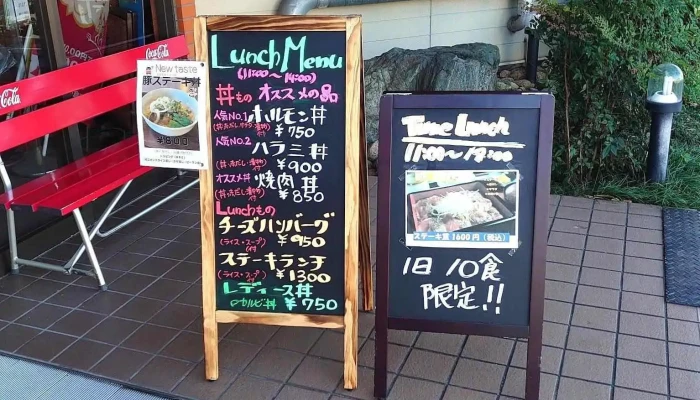 Coca-Cola
Coca-Cola
New taste
豚ステーキ丼
¥800
Lunch Menu
(11:00〜14:00)
丼もの オススメの品
人気No.1 ホルモン丼
¥750
人気No.2 ハラミ丼
¥900
オススメ 焼肉丼
¥850
Lunchもの
チーズハンバーグ
(ライス・スープ付) ¥950
ステーキランチ
(ライス・スープ付) ¥1300
レディース丼
¥750
Time Lunch
11:00〜14:00
ステーキ重 1600円(税込)
1日 10食
限定!!